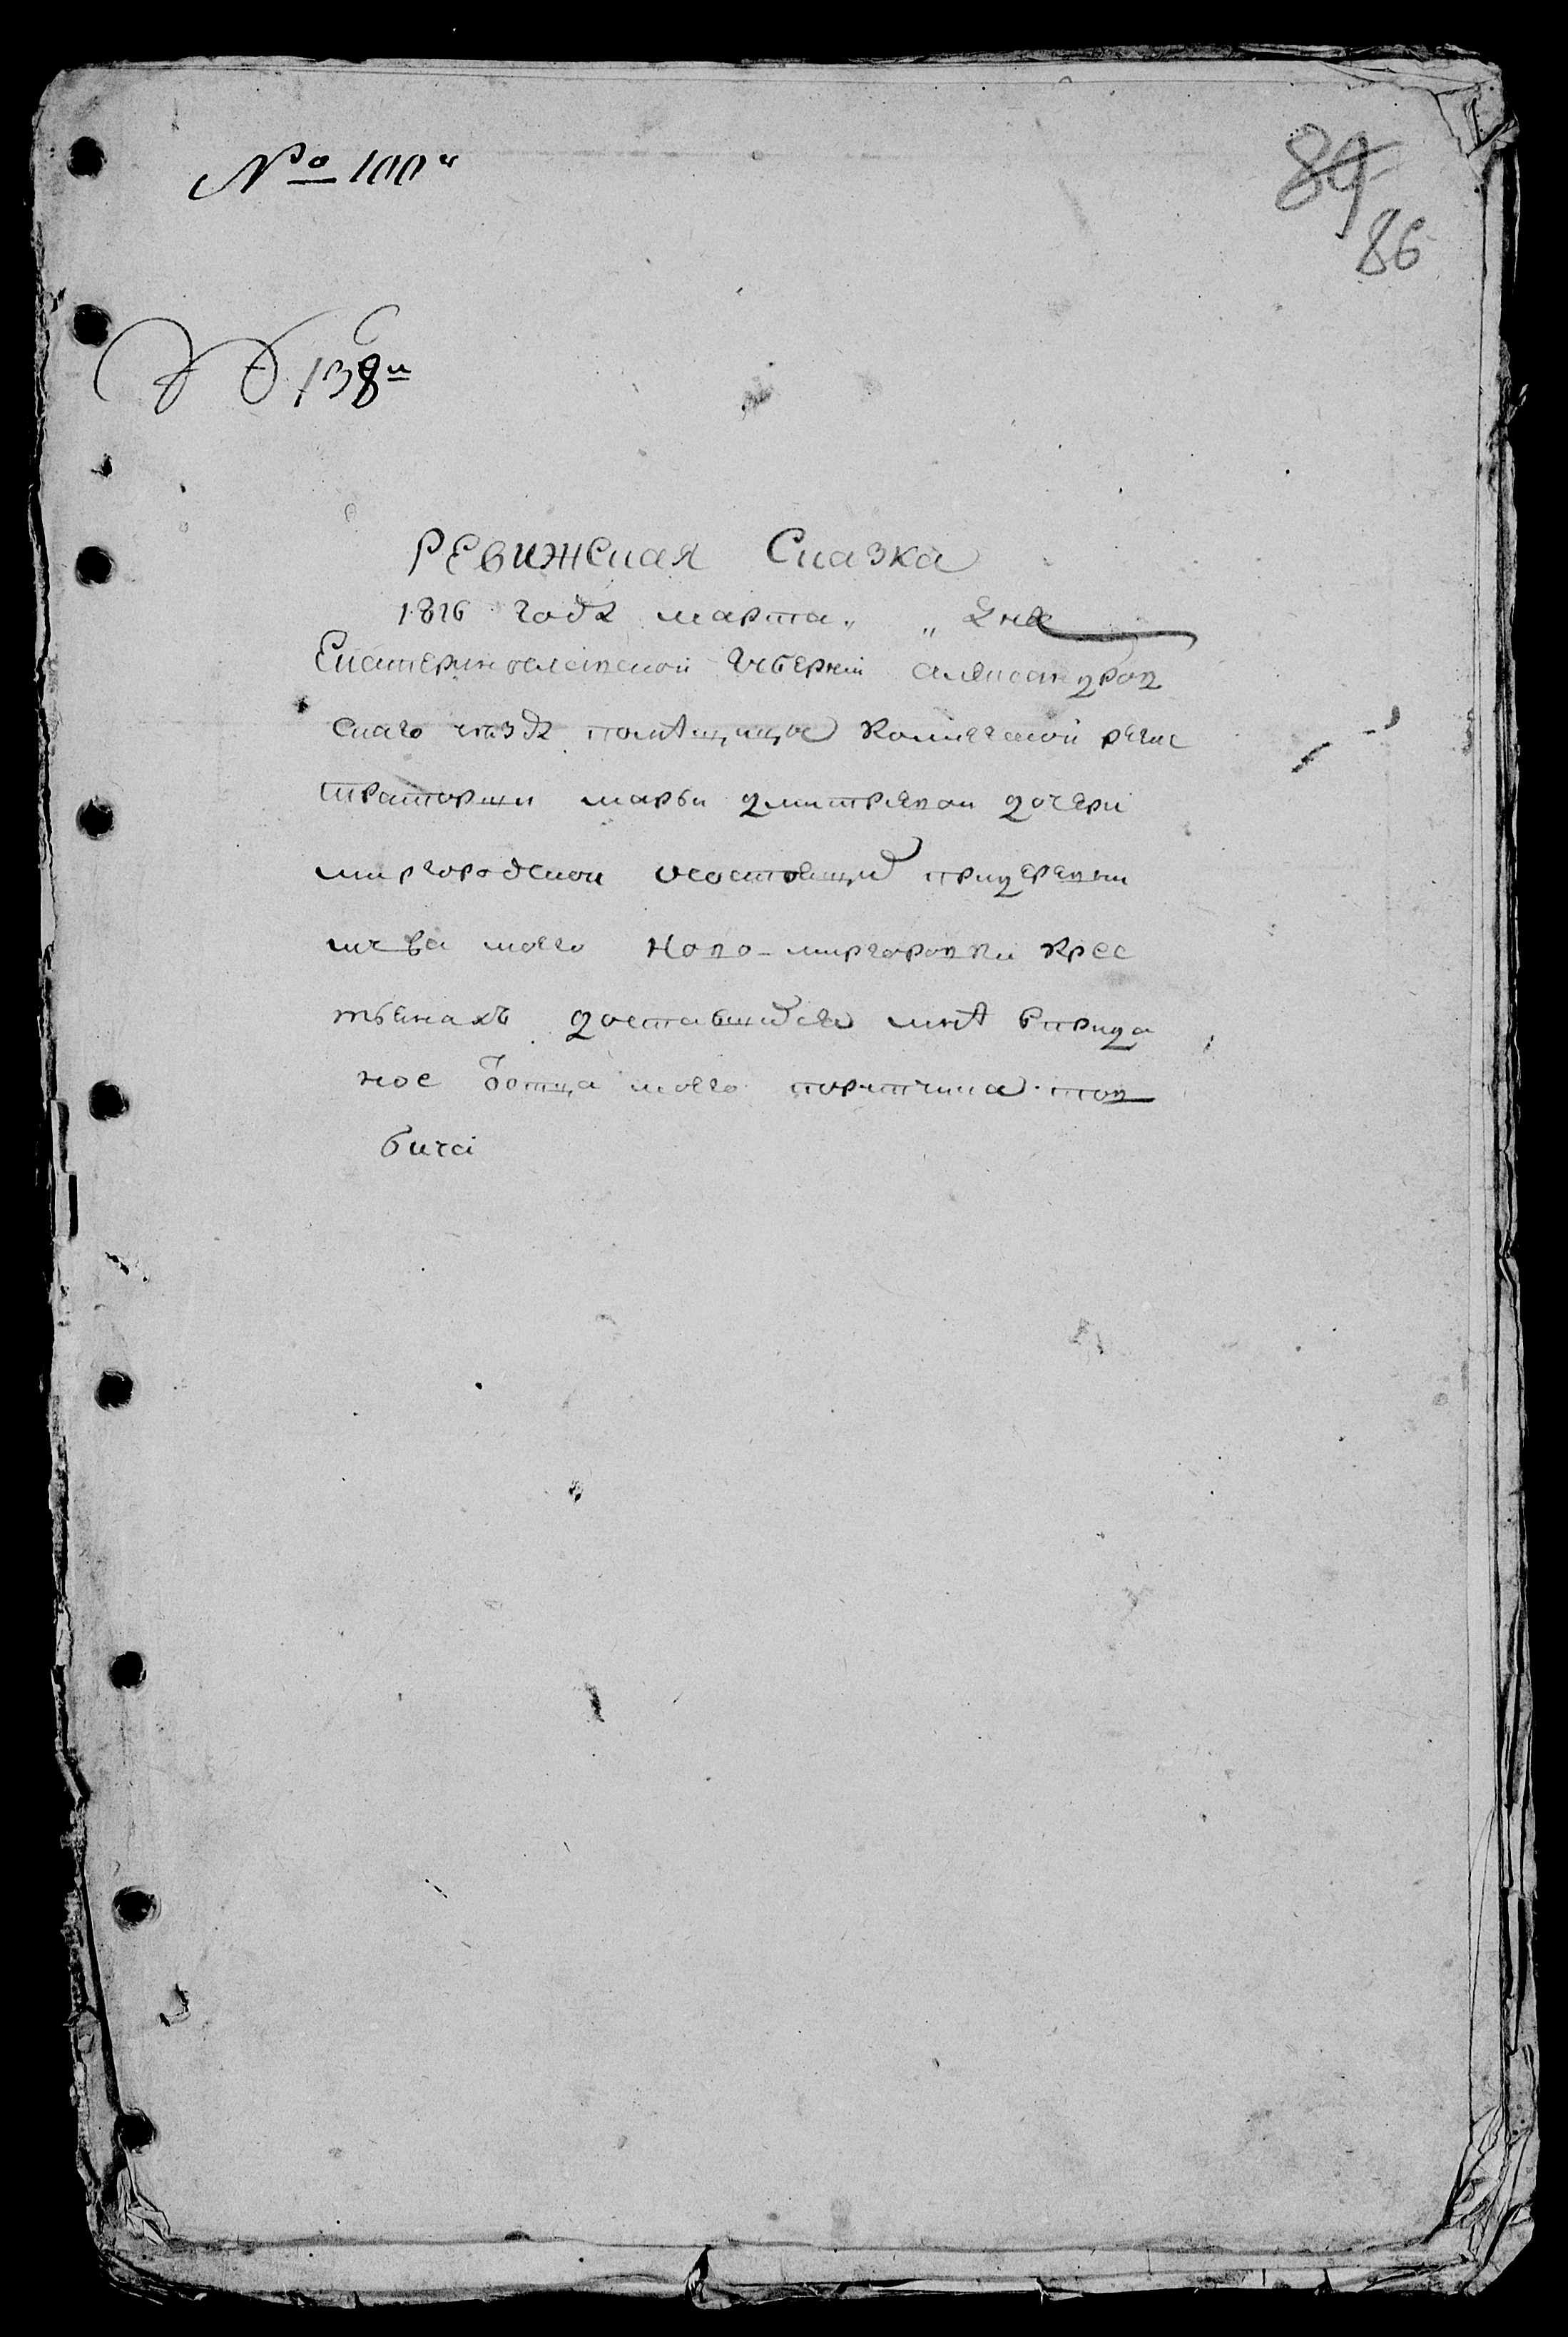 № 100й
89
86
138й
Ревижская Сказка
1816 года марта „ „ дня
Екатеринославской Губернии александров
скаго уезда помѣщицы колежской регис
траторши марьи дмитревои дочери
миргородской осостоящих придеревни
мужа моего ново-миргоровки крес
тьянахъ доставшихся мнѣ впрйда
ное ботца моего порутчика тов
бича